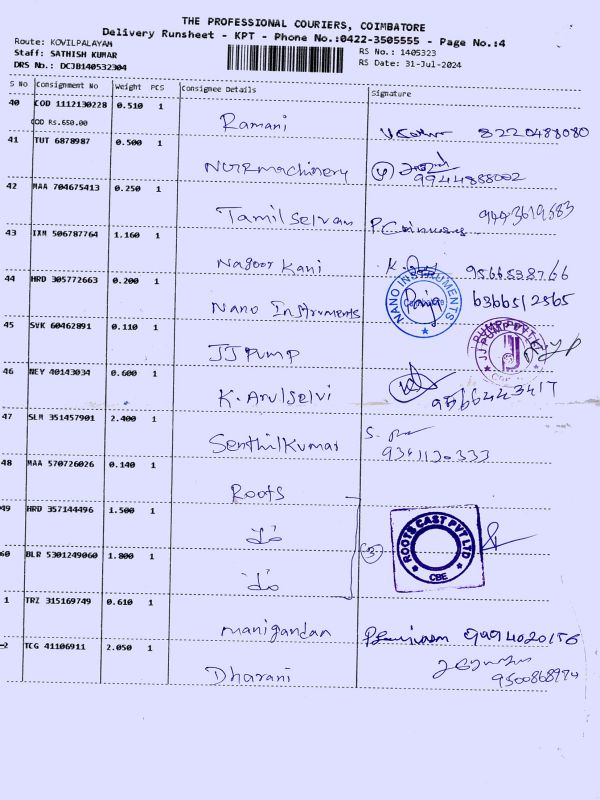 THE PROFESSIONAL COURIERS, COIMBATORE
Delivery Runsheet - KPT - Phone No.:0422-3505555 - Page No.:4
Route: KOVILPALAYAM
Staff: SATHISH KUMAR
DRS No.: DCJB140532304
RS No.: 1405323
RS Date: 31-Jul-2024
S No Consignment No Weight PCS Consignee Details Signature
40 COD 1112130228 0.510 1 Ramani 8220488080
COD Rs.650.00
41 TUT 6878987 0.500 1 machinery 9944888002
42 MAA 704675413 0.250 1 Tamil Selvan 9443619583
43 IXM 506787764 1.160 1 Nagoor Kani
44 HRD 305772663 0.200 1 Nano Instruments NANO INSTRUMENTS
45 SVK 60462891 0.110 1 JJ Pump JJ PUMP PVT LTD
46 NEY 40143034 0.600 1 K. Arulselvi 9566443417
47 SLM 351457901 2.400 1 Senthilkumar 9341120333
48 MAA 570726026 0.140 1 Roots
49 HRD 357144496 1.500 1 do
60 BLR 5301249060 1.800 1 do 3 ROOTS CAST PVT LTD CBE
1 TRZ 315169749 0.610 1 Manigandan 9994020156
2 TCG 41106911 2.050 1 Dharani 9500868974